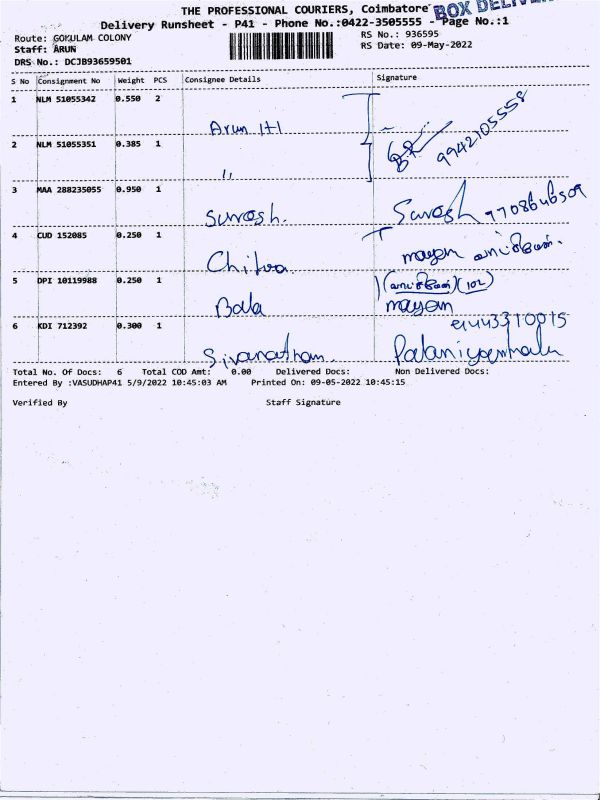 THE PROFESSIONAL COURIERS, Coimbatore BOX DELIVER
Delivery Runsheet - P41 - Phone No.:0422-3505555 - Page No.:1
Route: GOKULAM COLONY RS No.: 936595
Staff: ARUN RS Date: 09-May-2022
DRS No.: DCJB93659501
S No Consignment No Weight PCS Consignee Details Signature
1 NLM 51055342 0.550 2
Arun
9942105558
2 NLM 51055351 0.385 1
"
3 MAA 288235055 0.950 1
Suresh. Suresh
4 CUD 152085 0.250 1
Chitra mayan
5 DPI 10119988 0.250 1
(102)
Bala mayan
6 KDI 712392 0.300 1
Palaniyammal
Total No. Of Docs: 6 Total COD Amt: 0.00 Delivered Docs: Non Delivered Docs:
Entered By :VASUDHAP41 5/9/2022 10:45:03 AM Printed On: 09-05-2022 10:45:15
Verified By Staff Signature